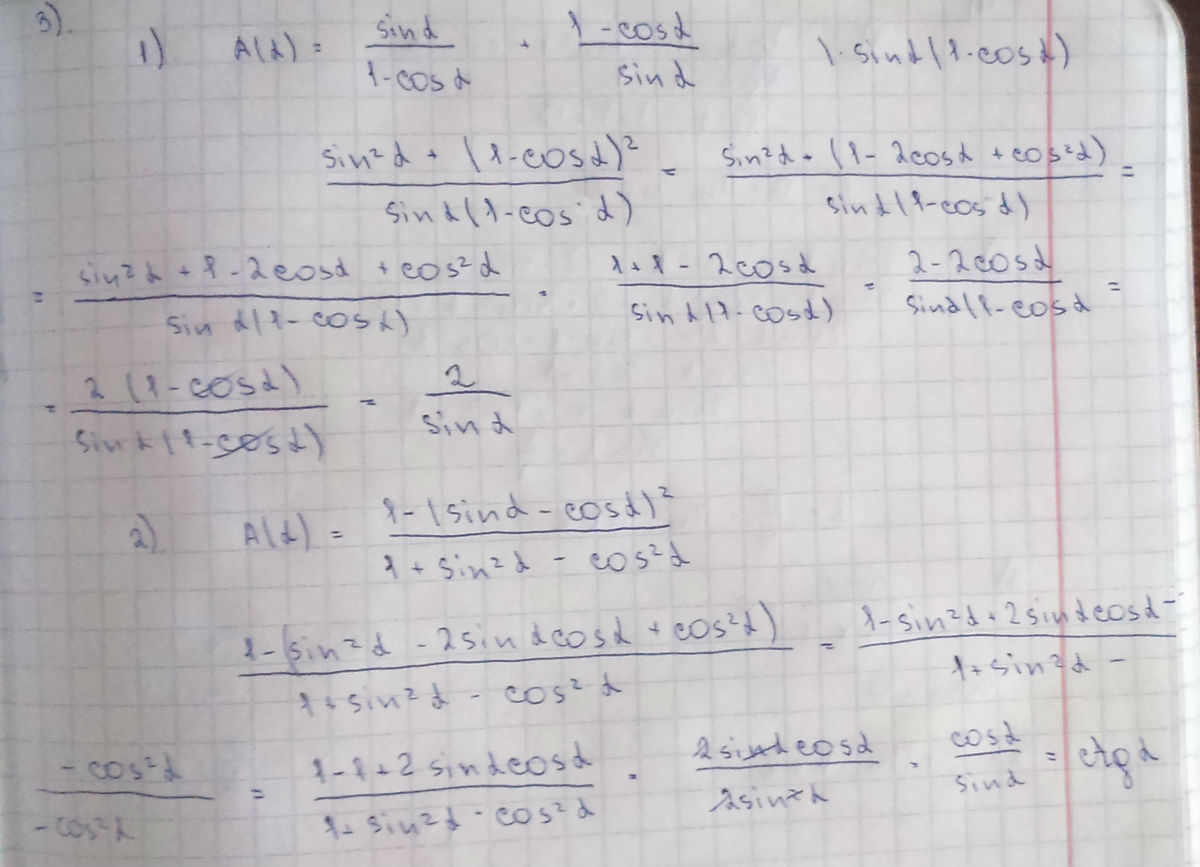 3).
1) A(α) = sinα/(1-cosα) + (1-cosα)/sinα |· sinα(1-cosα)
(sin²α + (1-cosα)²)/(sinα(1-cosα)) = (sin²α + (1-2cosα + cos²α))/(sinα(1-cosα)) =
= (sin²α + 1 - 2cosα + cos²α)/(sinα(1-cosα)) = (1+1-2cosα)/(sinα(1-cosα)) = (2-2cosα)/(sinα(1-cosα =
= 2(1-cosα)/(sinα(1-cosα)) = 2/sinα
2). A(α) = (1-(sinα - cosα)²)/(1 + sin²α - cos²α)
(1-(sin²α - 2sinαcosα + cos²α))/(1+sin²α - cos²α) = (1-sin²α + 2sinαcosα -)/(1+sin²α -)
(-cos²α)/(-cos²α) = (1-1+2sinαcosα)/(1+sin²α - cos²α) = (2sinαcosα)/(2sin²α) = cosα/sinα = ctgα